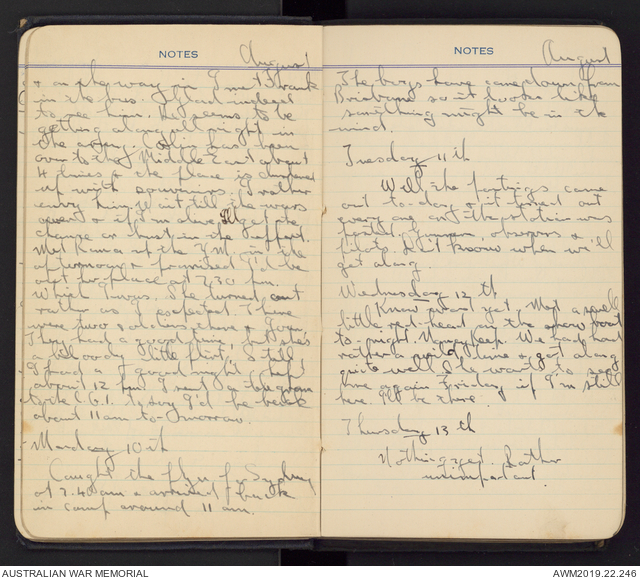 NOTES
August
& on the way in I met Frank
in the bus. Glad indeed
to see him. He seems to be
getting along all right in
the army. Colin has been
over to the Middle East about
4 times & the place is
up with souvenirs. I rather
envy him. Wait till the wars
over & if I'm alive I'll get the
change or bust in the
Met at the Y.M. in the
afternoon & promised I'd be
out to place at 7.30 pm.
Which I was. She turned out
rather as I expected. There
were two soldiers there & Joan.
They had a good time, but she's
a bloody little flirt. Still
I had a good night. Left
about 12 pm. I sent a telegram
to the C.O. to say I'd be back
about 11 am to-morrow.
Monday 10th
Caught the flyer for Sydney
at 7.40 am & arrived back
in camp around 11 am.
NOTES
August
The boys have come down from
Brisbane so it looks like
something might be in the
wind.
Tuesday 11th
Well the postings came
out to-day & it turned out
every one on the station was
posted, gunners, observers &
pilots. Don't know when we'll
get along.
Wednesday 12th
Know yet. Met a swell
little red-head on the show boat
to-night. We had
rather a good time & got along
quite well. She wants to see
me again Friday if I'm still
here. I'll be there.
Thursday 13th
Nothing yet. Rather
unimportant.
AUSTRALIAN WAR MEMORIAL
AWM2019.22.246